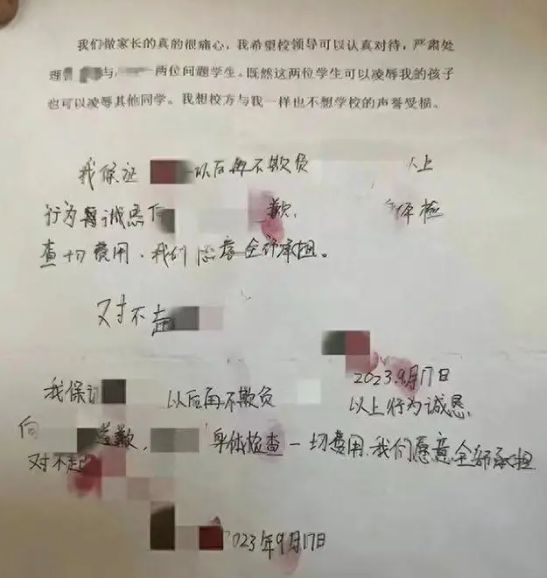 我们做家长的真的很痛心，我希望校领导可以认真对待，严肃处
理曾 与， 一两位问题学生。既然这两位学生可以凌辱我的孩子
也可以凌辱其他同学。我想校方与我一样也不想学校的声誉受损。
我保证 以后再不欺负 以上
行为 诚恳向 歉， 体检
查一切费用，我们愿意全部承担。
对不起
2023.9月17日
我保证 以后再不欺负 以上行为诚恳
向 道歉， 身体检查一切费用，我们愿意全部承担
对不起
2023年9月17日